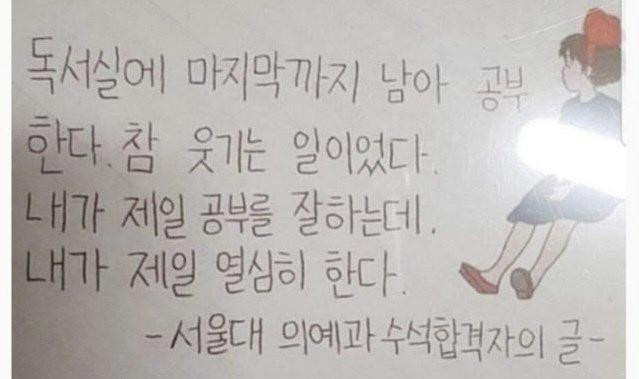 독서실에 마지막까지 남아 공부
한다. 참 웃기는 일이었다.
내가 제일 공부를 잘하는데.
내가 제일 열심히 한다.
-서울대 의예과 수석합격자의 글-